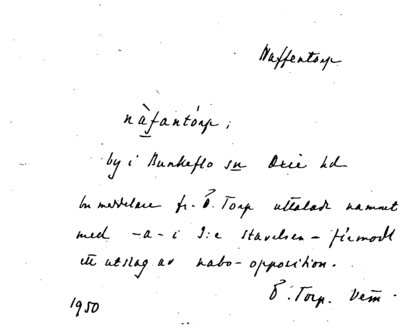 Naffentorp
nàfantórp;
by i Bunkeflo sn Oxie hd
en meddelare fr. Ö. Torp uttalade namnet
med -a- i 2:e stavelsen - förmodl
ett utslag av nabo-opposition.
Ö. Torp. Vem.
1950